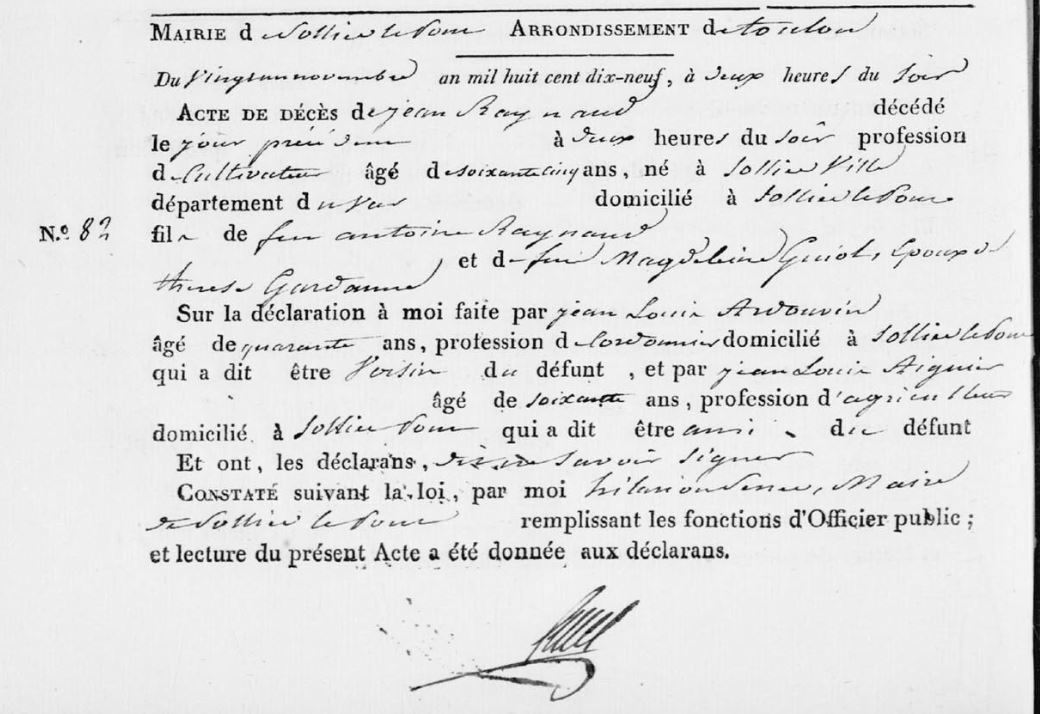 MAIRIE de Sollies le Pont ARRONDISSEMENT de toulon
Du Vingt un novembre an mil huit cent dix-neuf, à deux heures du Soir
ACTE DE DÉCÈS de jean Raynaud décédé
le jour précédent à deux heures du soir profession
de Cultivateur âgé de soixante cinq ans, né à Sollies Ville
département du var domicilié à Sollies le Pont
N.o 82 fils de feu antoine Raynaud
et de feue Magdeleine Guiol, Epoux de
therese Gardanne
Sur la déclaration à moi faite par jean Louis Ardouvin
âgé de quarante ans, profession de Cordonnier domicilié à Sollies le Pont
qui a dit être Voisin du défunt, et par jean Louis Aiguier
âgé de soixante ans, profession d'agriculteur
domicilié à Sollies Pont qui a dit être ami du défunt
Et ont, les déclarans, dit ne savoir signer
CONSTATÉ suivant la loi, par moi hilarion Maire
de Sollies le Pont remplissant les fonctions d'Officier public ;
et lecture du présent Acte a été donnée aux déclarans.